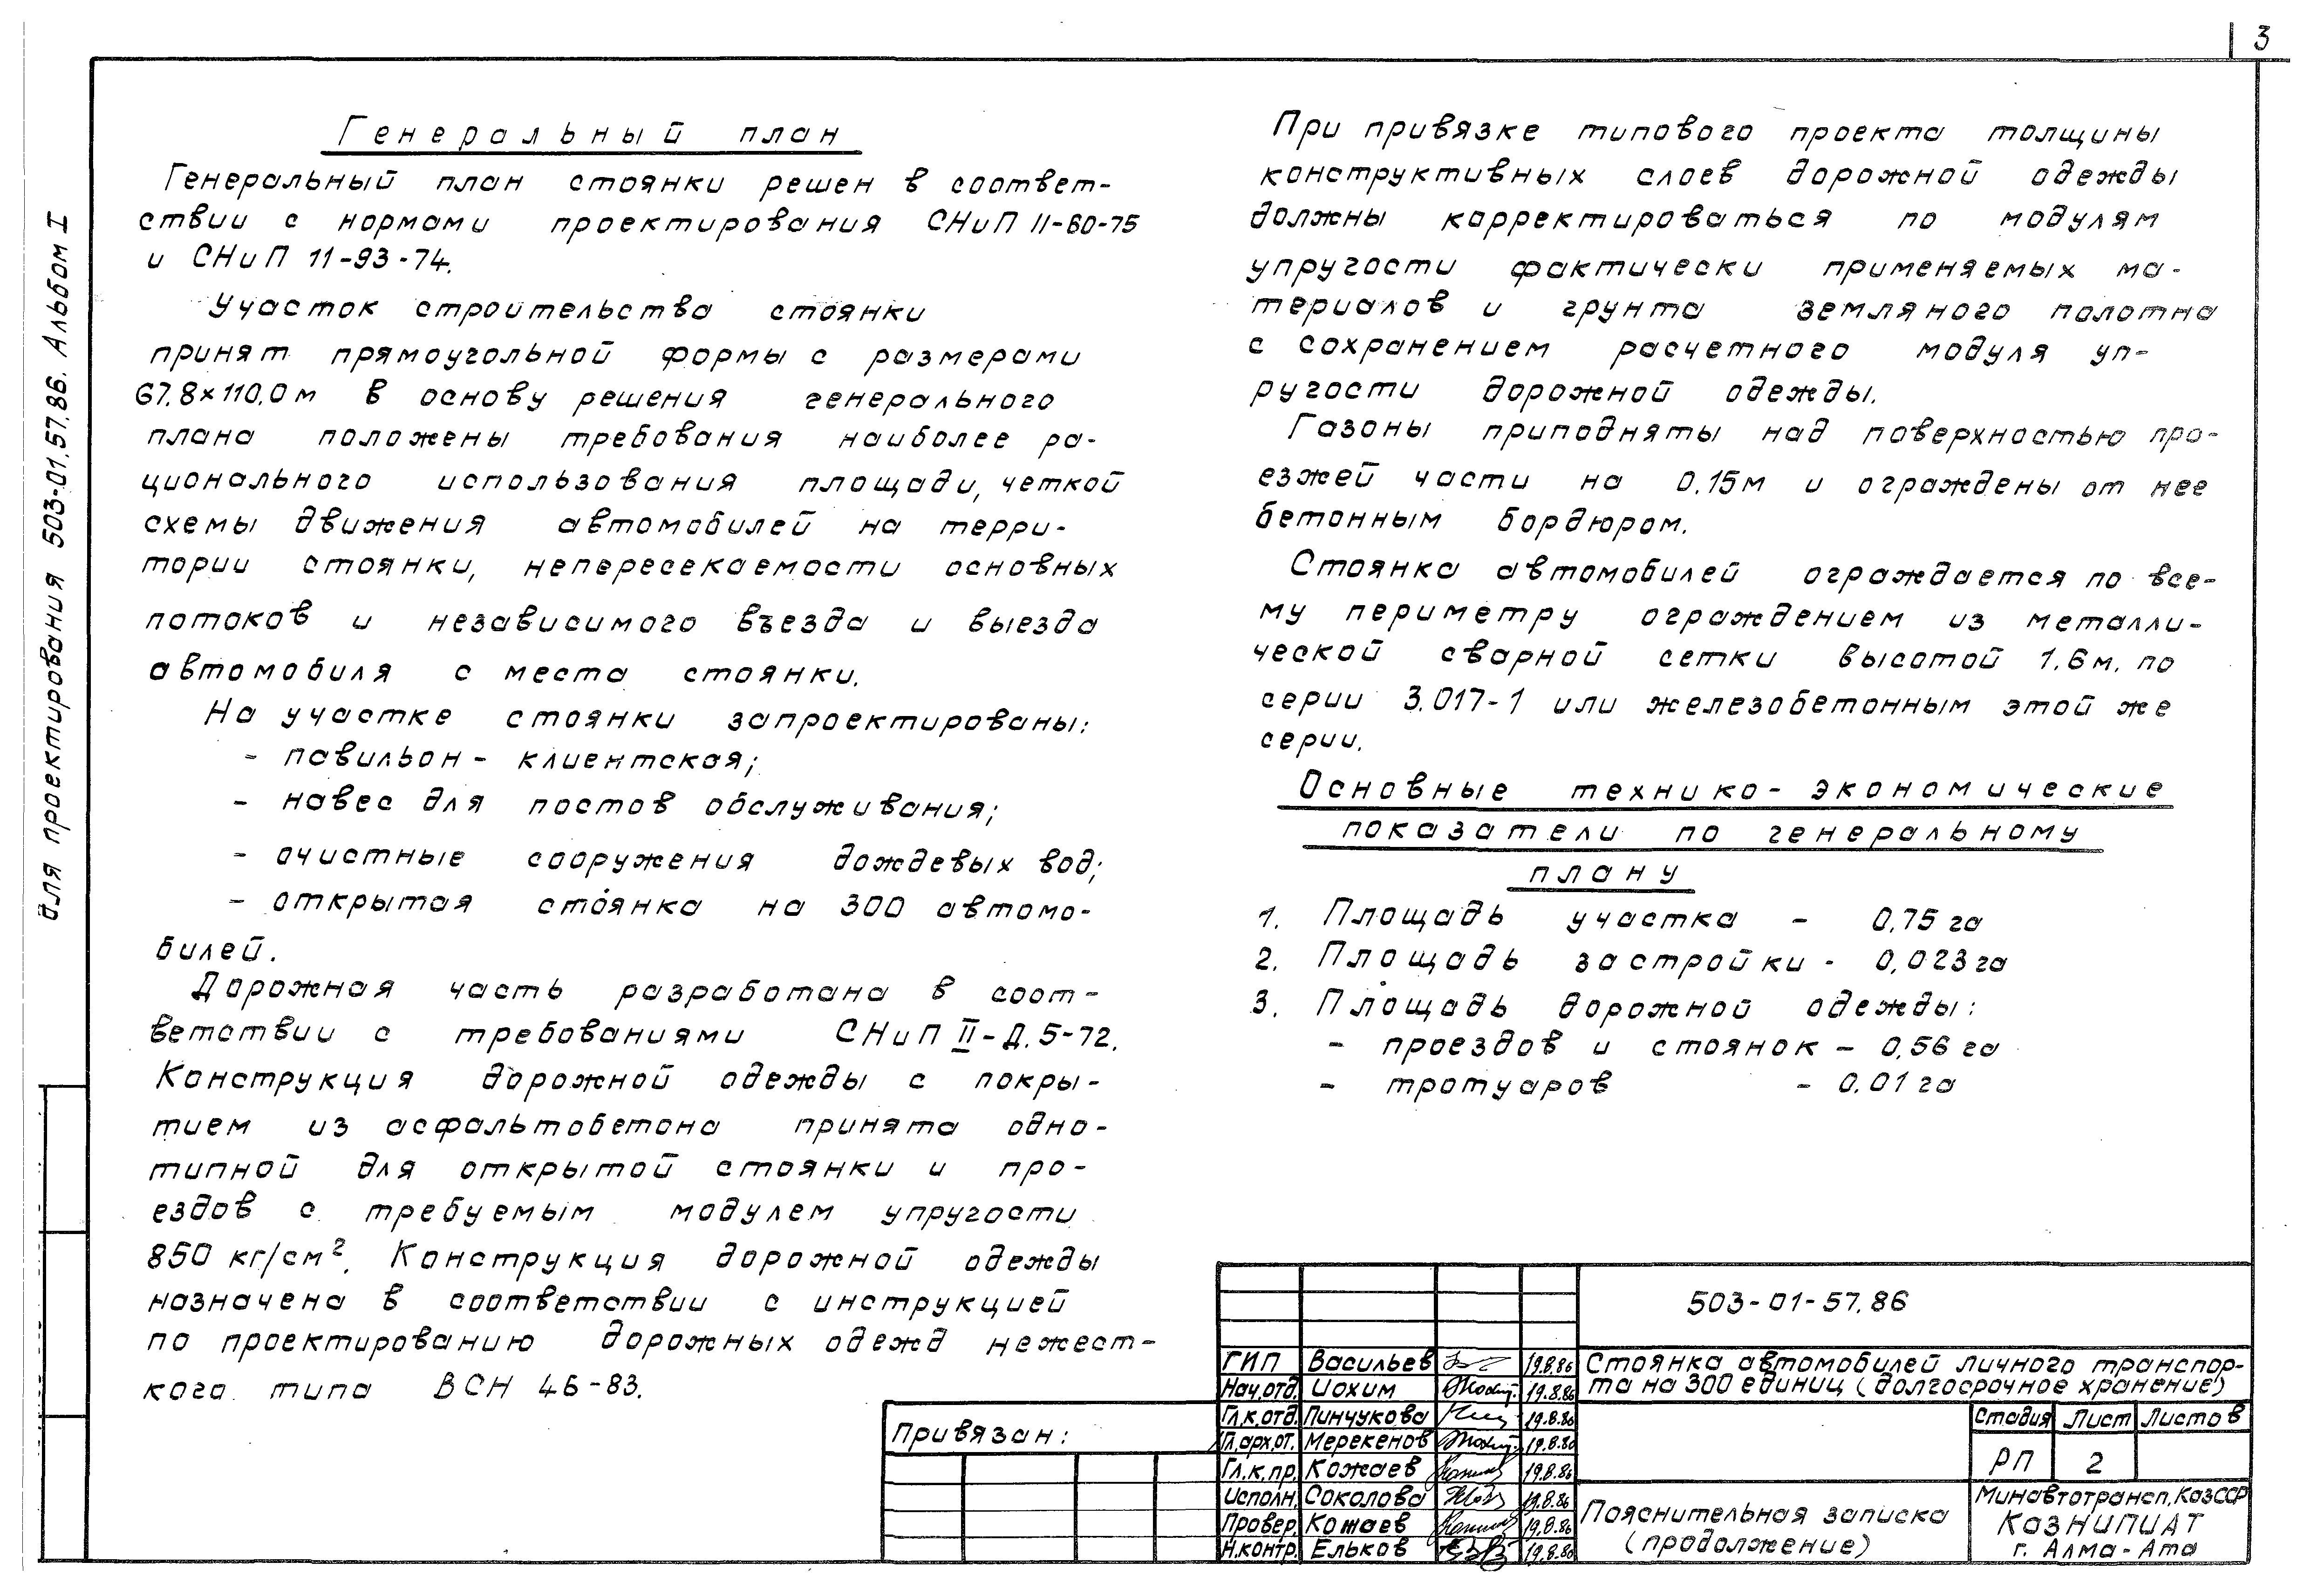 3
для проектирования 503-01.57.86. Альбом I
Генеральный план
Генеральный план стоянки решен в соответ-
ствии с нормами проектирования СНиП II-60-75
и СНиП 11-93-74.
Участок строительства стоянки
принят прямоугольной формы с размерами
67.8×110.0м В основу решения генерального
плана положены требования наиболее ра-
ционального использования площади, четкой
схемы движения автомобилей на терри-
тории стоянки, непересекаемости основных
потоков и независимого въезда и выезда
автомобиля с места стоянки.
На участке стоянки запроектированы:
- павильон - клиентская;
- навес для постов обслуживания;
- очистные сооружения дождевых вод;
- открытая стоянка на 300 автомо-
билей.
Дорожная часть разработана в соот-
ветствии с требованиями СНиП II-Д.5-72.
Конструкция дорожной одежды с покры-
тием из асфальтобетона принята одно-
типной для открытой стоянки и про-
ездов с требуемым модулем упругости
850 кг/см². Конструкция дорожной одежды
назначена в соответствии с инструкцией
по проектированию дорожных одежд нежест-
кого типа ВСН 46-83.
При привязке типового проекта толщины
конструктивных слоев дорожной одежды
должны корректироваться по модулям
упругости фактически применяемых ма-
териалов и грунта земляного полотна
с сохранением расчетного модуля уп-
ругости дорожной одежды.
Газоны приподняты над поверхностью про-
езжей части на 0.15м и ограждены от нее
бетонным бордюром.
Стоянка автомобилей ограждается по все-
му периметру ограждением из металли-
ческой сварной сетки высотой 1.6м. по
серии 3.017-1 или железобетонным этой же
серии.
Основные технико-экономические
показатели по генеральному
плану
1. Площадь участка - 0.75 га
2. Площадь застройки - 0,023 га
3. Площадь дорожной одежды:
- проездов и стоянок - 0,56 га
- тротуаров - 0.01 га
Привязан:
503-01-57.86
ГИП Васильев 19.8.86
Нач.отд. Иохим 19.8.86
Гл.к.отд. Пинчукова 19.8.86
Гл.арх.от. Мерекенов 19.8.86
Гл.к.пр. Кожаев 19.8.86
Исполн. Соколова 19.8.86
Провер. Кожаев 19.8.86
Н.контр. Ельков 19.8.86
Стоянка автомобилей личного транспор-
та на 300 единиц (долгосрочное хранение)
Стадия Лист Листов
РП 2
Пояснительная записка
(продолжение)
Минавтотрансп.КазССР
КАЗНИПИАТ
г. Алма-Ата